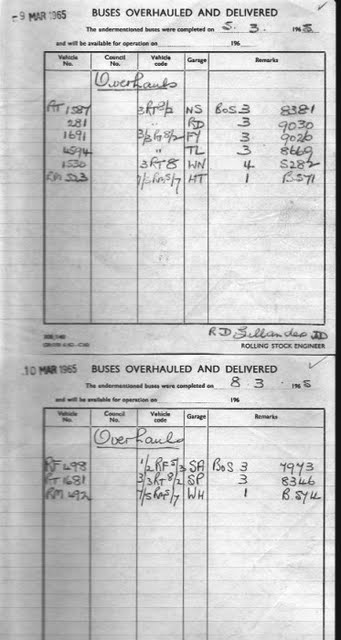 -9 MAR 1965 BUSES OVERHAULED AND DELIVERED
The undermentioned buses were completed on 5. 3. 1965
and will be available for operation on 196
Vehicle No. Council No. Vehicle code Garage Remarks
Overhauls
RT 1587 3RT8/2 NS BOS 3 8381
281 " RD 3 9030
1691 3/3RT8/2 FY 3 9026
4594 " TL 3 8669
1530 3RT8 WN 4 5282
RM 523 7/5RM5/7 HT 1 B571
ROLLING STOCK ENGINEER
10 MAR 1965 BUSES OVERHAULED AND DELIVERED
The undermentioned buses were completed on 8 3 1965
and will be available for operation on 196
Vehicle No. Council No. Vehicle code Garage Remarks
Overhauls
RF 498 1/2RF5/3 SA BOS 3 7973
RT 1681 3/3RT8/2 SP 3 8346
RM 492 7/5RM5/7 WH 1 B574